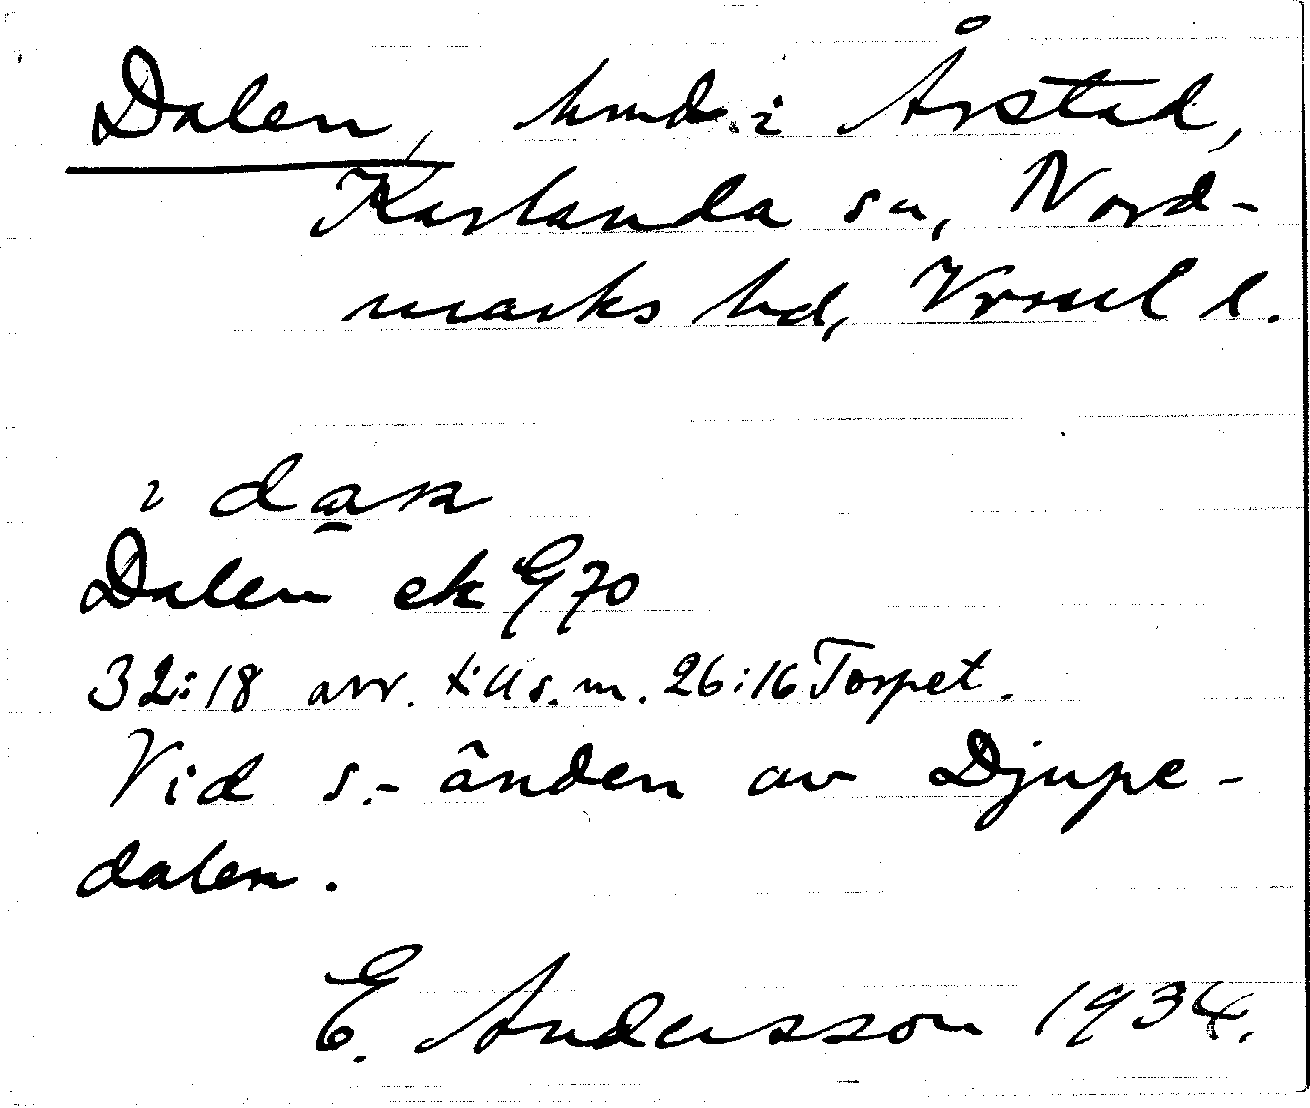 Dalen, hmd. i Årstad,
Karlanda sn, Nord-
marks hd, Vrml l.
i dan
Dalen ek G 70
32:18 avr. tills.m. 26:16 Torpet.
Vid s.-änden av Djupe-
dalen.
E. Andersson 1934.